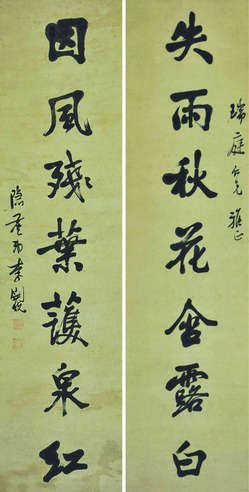 瑞庭仁兄雅正
失雨秋花含露白
因風殘葉護泉紅
李